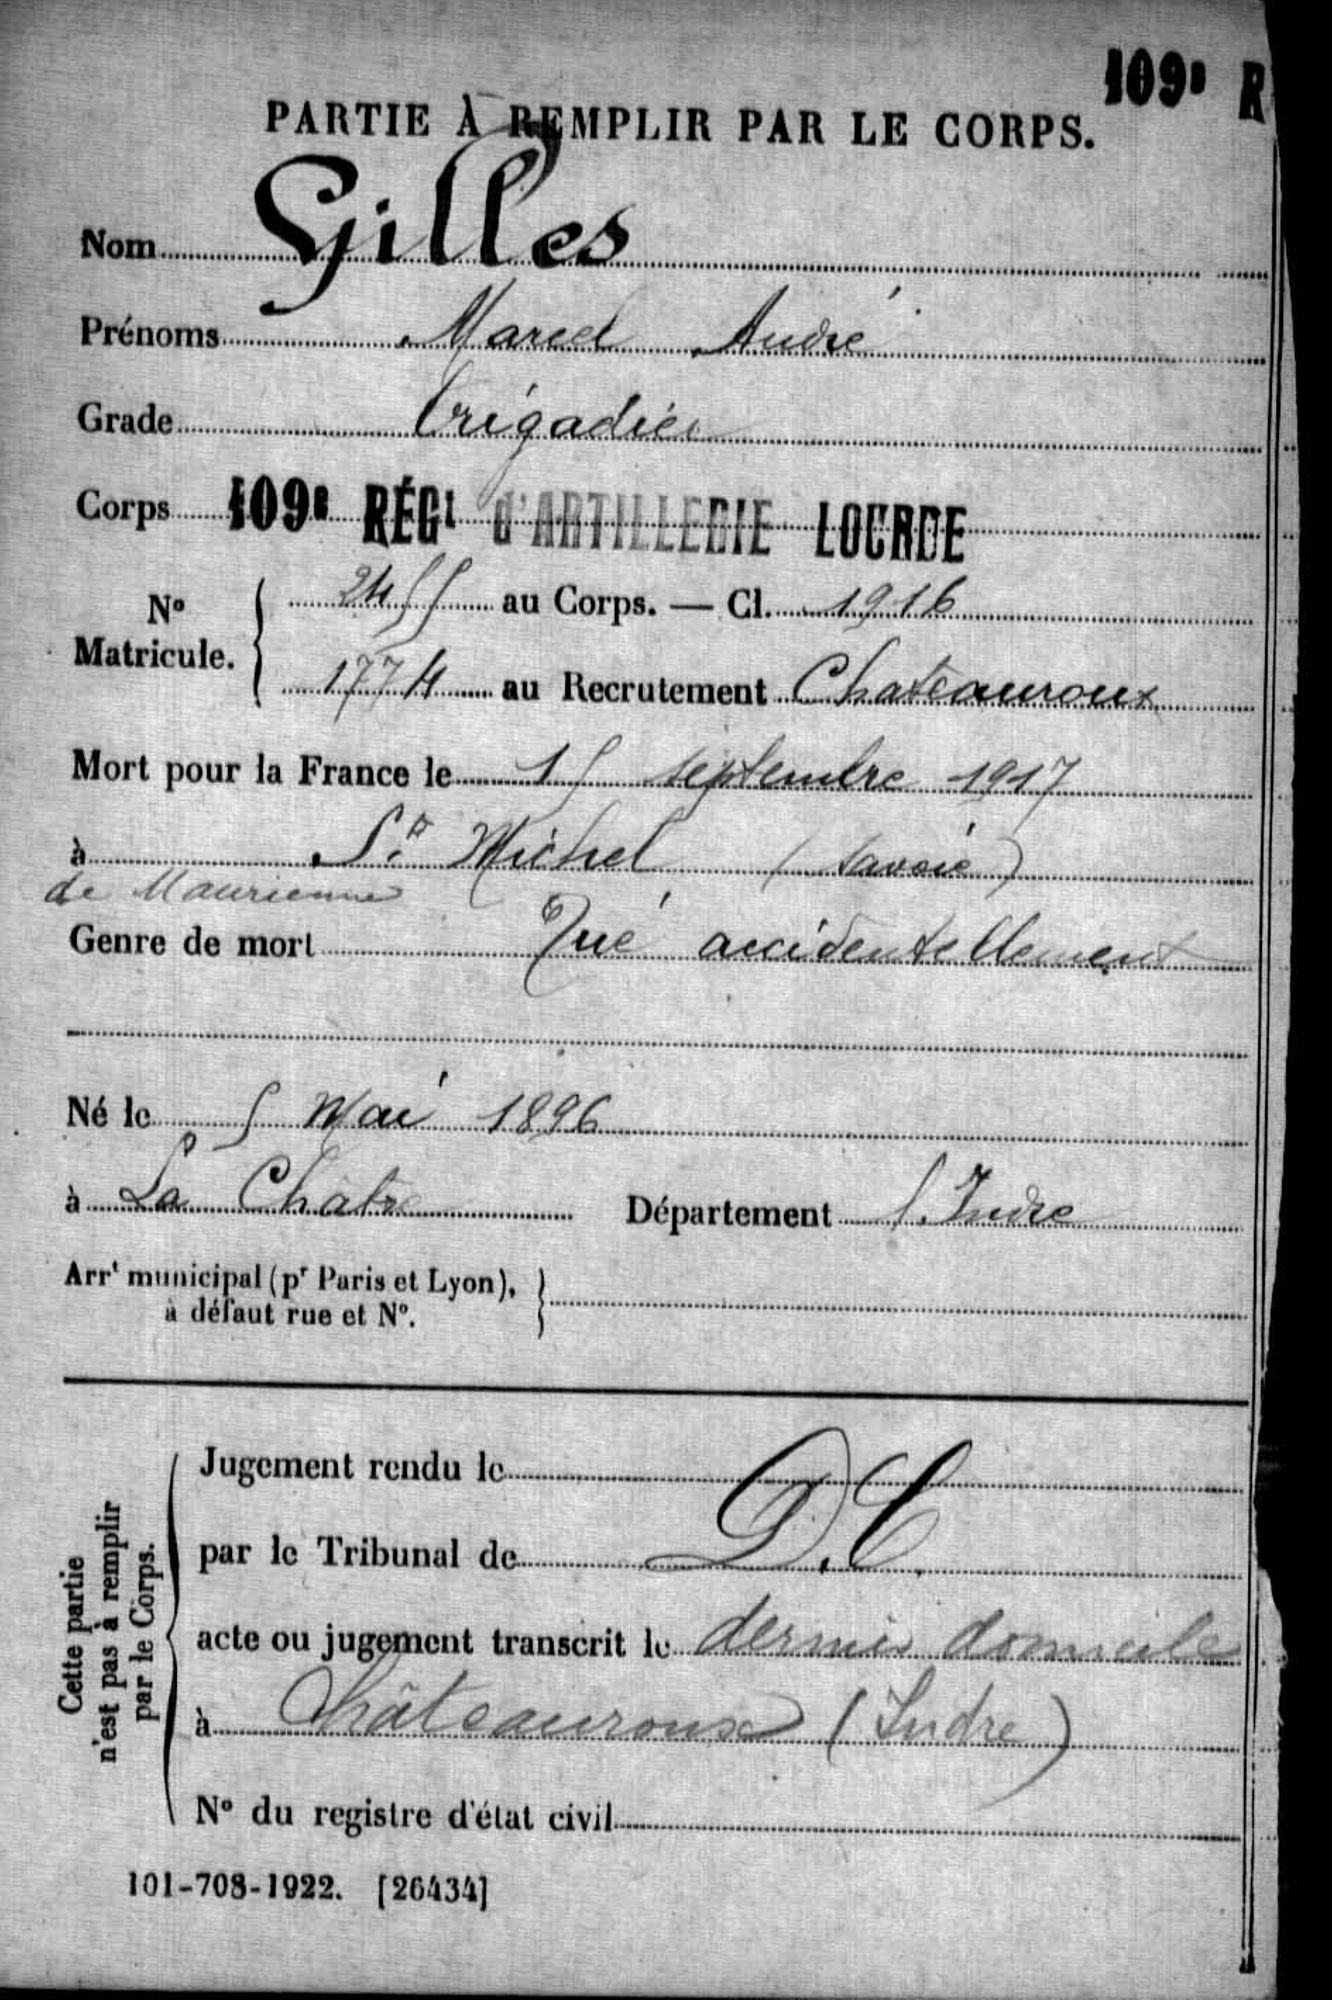 109e R
PARTIE À REMPLIR PAR LE CORPS.
Nom Gilles
Prénoms Marcel André
Grade brigadier
Corps 109e RÉGt d'ARTILLERIE LOURDE
No Matricule. 2455 au Corps. — Cl. 1916
1774 au Recrutement Chateauroux
Mort pour la France le 15 septembre 1917
à St Michel (Savoie)
de Maurienne
Genre de mort Tué accidentellement
Né le 5 Mai 1896
à La Châtre Département l'Indre
Arrt municipal (pr Paris et Lyon),
à défaut rue et No.
Cette partie
n'est pas à remplir
par le Corps.
Jugement rendu le
par le Tribunal de D.C
acte ou jugement transcrit le dernier domicile
à Châteauroux (Indre)
No du registre d'état civil
101-708-1922. [26434]